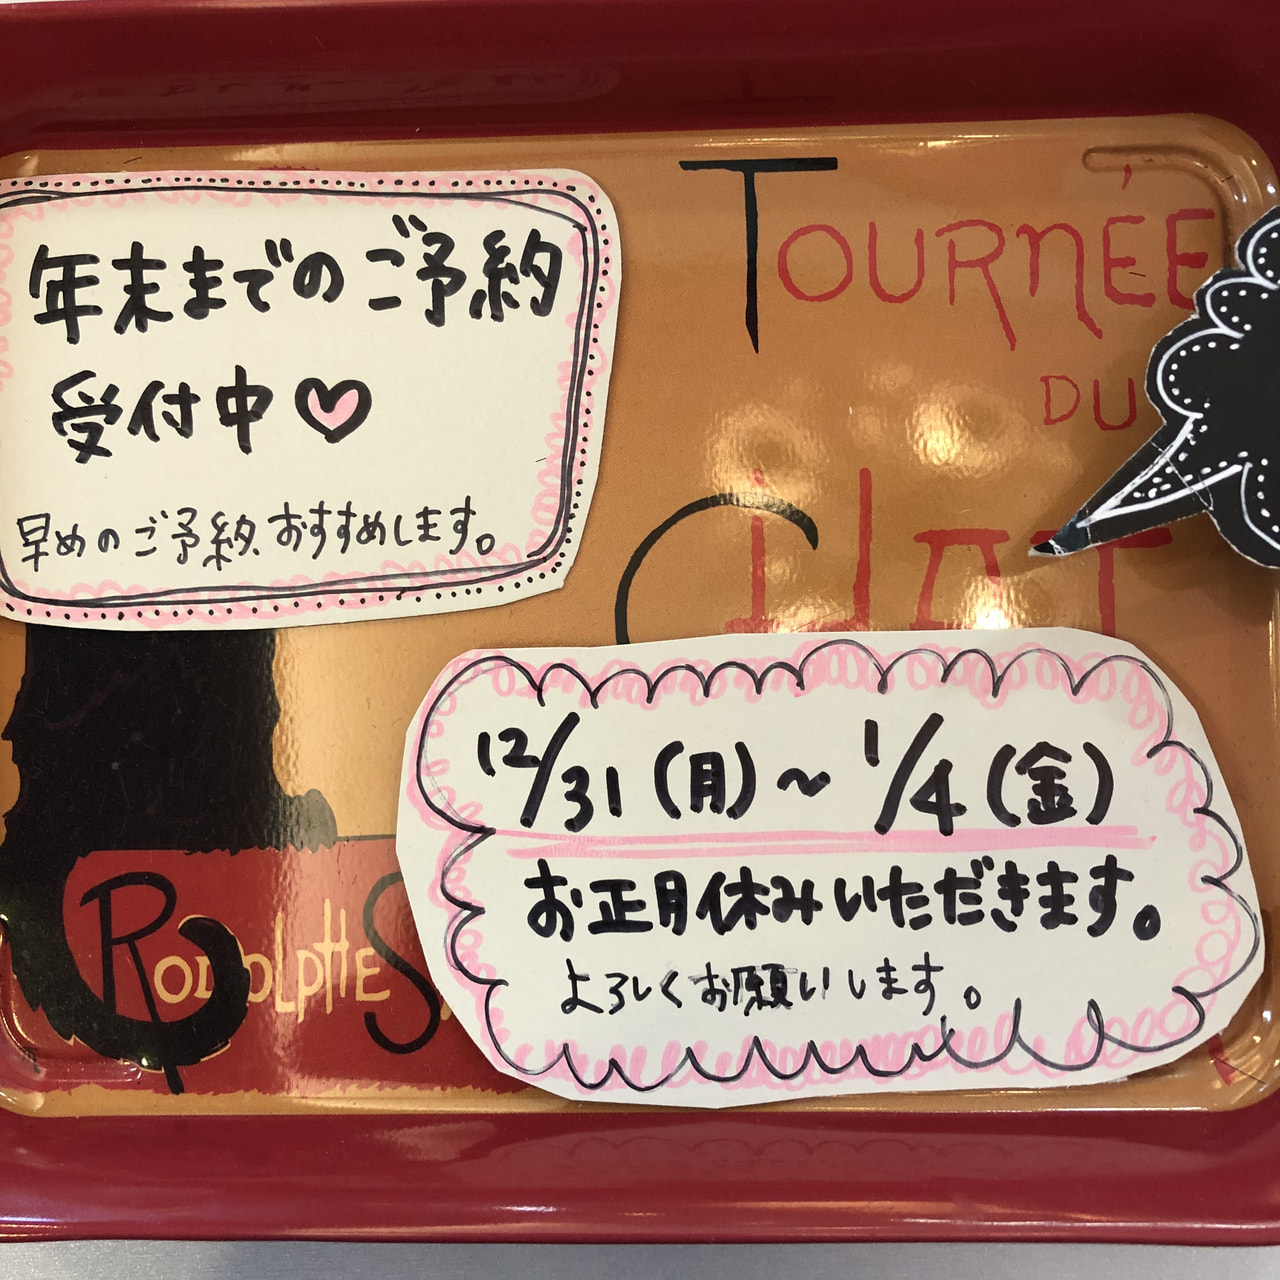 年末までのご予約
受付中♡
早めのご予約、おすすめします。
TOURNÉE
DU
CHAT
12/31(月)～1/4(金)
お正月休みいただきます。
よろしくお願いします。
RODOLPHE S